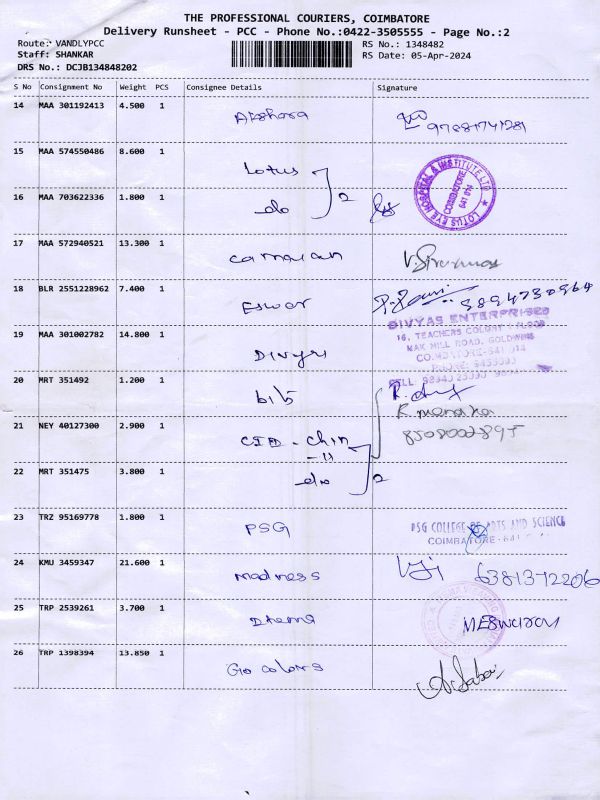 THE PROFESSIONAL COURIERS, COIMBATORE
Delivery Runsheet - PCC - Phone No.:0422-3505555 - Page No.:2
Route: VANDLYPCC
RS No.: 1348482
Staff: SHANKAR
RS Date: 05-Apr-2024
DRS No.: DCJB134848202
S No Consignment No Weight PCS Consignee Details Signature
14 MAA 301192413 4.500 1
15 MAA 574550486 8.600 1 Lotus
LOTUS EYE HOSPITAL & INSTITUTE LTD
COIMBATORE
641 014
16 MAA 703622336 1.800 1 do 2
17 MAA 572940521 13.300 1
18 BLR 2551228962 7.400 1 Eswar 9894730964
DIVYAS ENTERPRISES
16, TEACHERS COLONY
MAK MILL ROAD, GOLDWINS
COIMBATORE-641 014
19 MAA 301002782 14.800 1
20 MRT 351492 1.200 1
K. menaka
8508002895
21 NEY 40127300 2.900 1
22 MRT 351475 3.800 1 do 2
23 TRZ 95169778 1.800 1 PSG
PSG COLLEGE OF ARTS AND SCIENCE
COIMBATORE-641
24 KMU 3459347 21.600 1 madness Viji 6381372206
25 TRP 2539261 3.700 1
26 TRP 1398394 13.850 1 Go colors